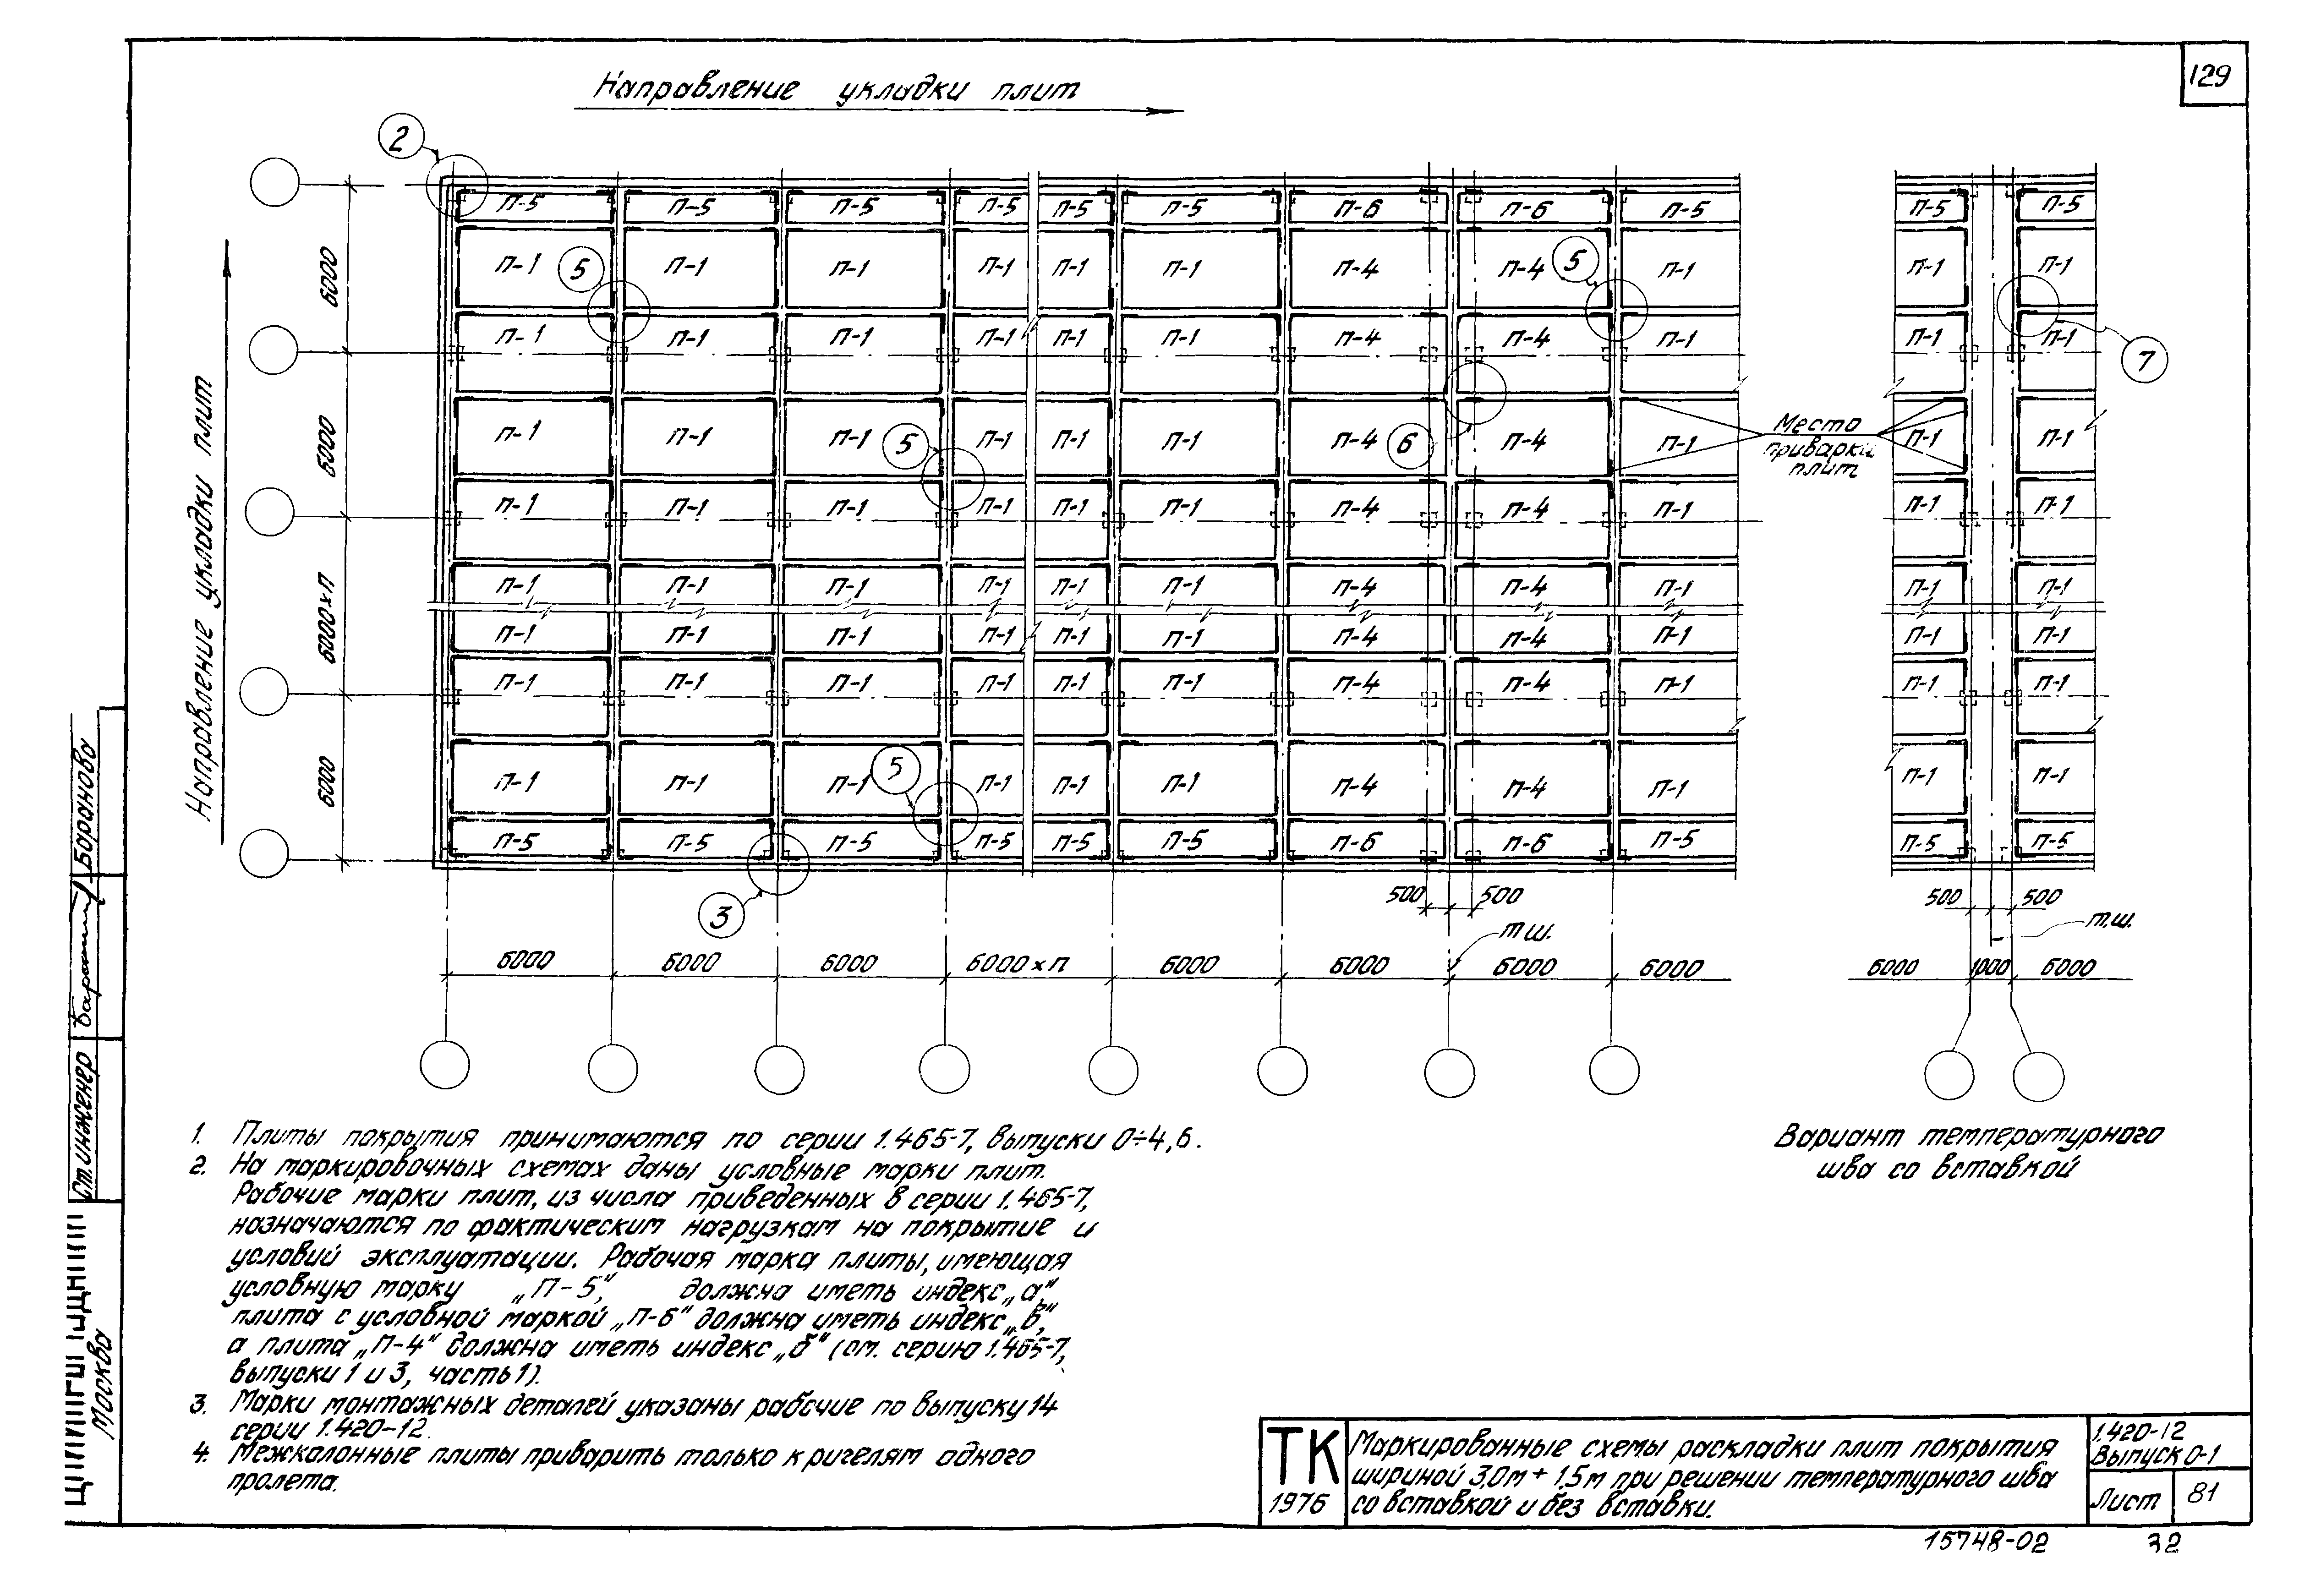 129
Направление укладки плит
2
П-5 П-5 П-5 П-5 П-5 П-5 П-6 П-6 П-5 П-5 П-5
П-1 5 П-1 П-1 П-1 П-1 П-1 П-4 П-4 5 П-1 П-1 П-1
6000
П-1 П-1 П-1 П-1 П-1 П-1 П-4 П-4 П-1 П-1 П-1
7
Направление укладки плит
6000
П-1 П-1 П-1 5 П-1 П-1 П-1 П-4 6 П-4 П-1 П-1 П-1
Место
приварки
плит
П-1 П-1 П-1 П-1 П-1 П-1 П-4 П-4 П-1 П-1 П-1
6000хп
П-1 П-1 П-1 П-1 П-1 П-1 П-4 П-4 П-1 П-1 П-1
П-1 П-1 П-1 П-1 П-1 П-1 П-4 П-4 П-1 П-1 П-1
П-1 П-1 П-1 П-1 П-1 П-1 П-4 П-4 П-1 П-1 П-1
6000
П-1 П-1 П-1 5 П-1 П-1 П-1 П-4 П-4 П-1 П-1 П-1
П-5 П-5 П-5 П-5 П-5 П-5 П-6 П-6 П-5 П-5 П-5
3
500 500 500 500
т.ш. т.ш.
6000 6000 6000 6000хп 6000 6000 6000 6000 6000 1000 6000
Вариант температурного
шва со вставкой
1. Плиты покрытия принимаются по серии 1.465-7, выпуски 0÷4,6.
2. На маркировочных схемах даны условные марки плит.
Рабочие марки плит, из числа приведенных в серии 1.465-7,
назначаются по фактическим нагрузкам на покрытие и
условий эксплуатации. Рабочая марка плиты, имеющая
условную марку „П-5", должна иметь индекс „а",
плита с условной маркой „П-6" должна иметь индекс „в",
а плита „П-4" должна иметь индекс „б" (см. серию 1.465-7,
выпуски 1 и 3, часть 1).
3. Марки монтажных деталей указаны рабочие по выпуску 14
серии 1.420-12.
4. Межколонные плиты приварить только к ригелям одного
пролета.
Ст. инженер
Баранова
Москва
ТК
1976
Маркированные схемы раскладки плит покрытия
шириной 3,0м + 1,5м при решении температурного шва
со вставкой и без вставки.
1.420-12
Выпуск 0-1
Лист 81
15748-02 32